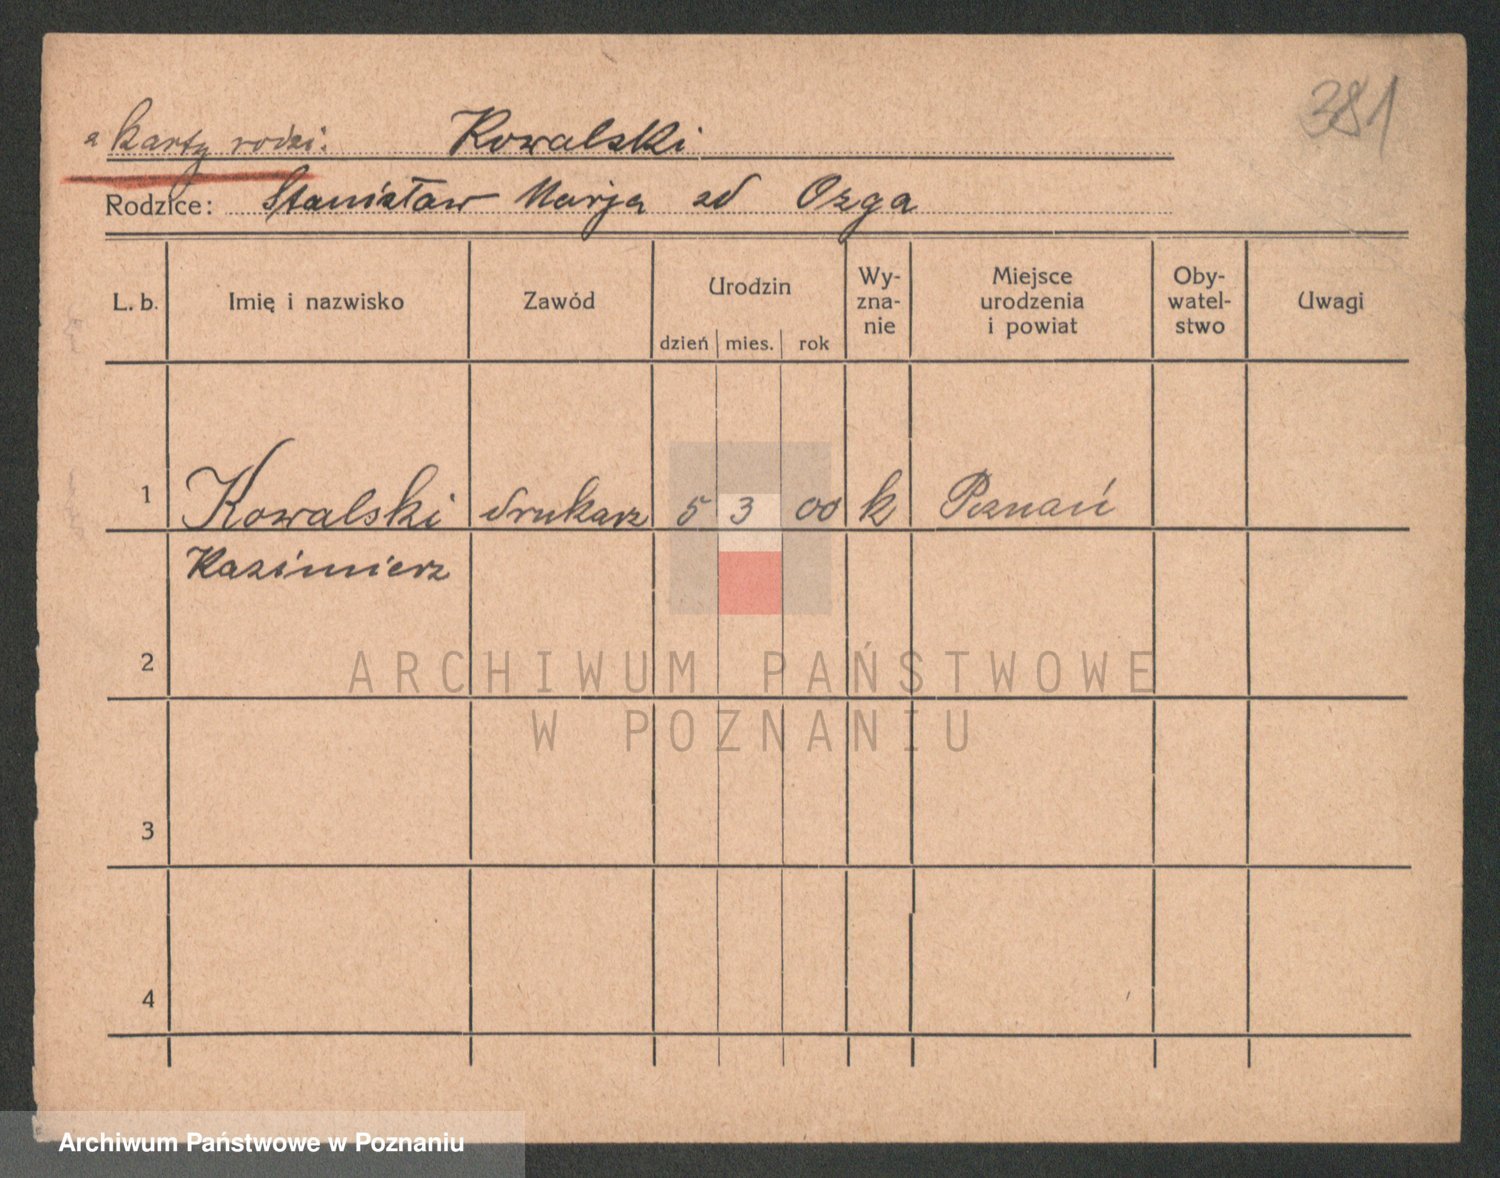 381
z karty rodzi. Kowalski
Rodzice: Stanisław Marja zd Ozga
L. b. Imię i nazwisko Zawód Urodzin dzień mies. rok Wy-zna-nie Miejsce urodzenia i powiat Oby-watel-stwo Uwagi
1 Kowalski drukarz 5 3 00 k Poznań
Kazimierz
2
ARCHIWUM PAŃSTWOWE
W POZNANIU
3
4
Archiwum Państwowe w Poznaniu